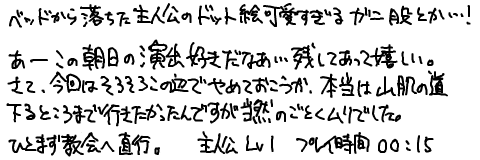 ベッドから落ちた主人公のドット絵可愛すぎるガニ股とかい…!
あーこの朝日の演出好きだなあい残してあって嬉しい。
さて、今回はそろそろこの辺でやめておこうか、本当は山肌の道
下るところまで行きたかったんですが当然のごとくムリでした。
ひとまず教会へ直行。 主人公 Lv1 プレイ時間 00:15